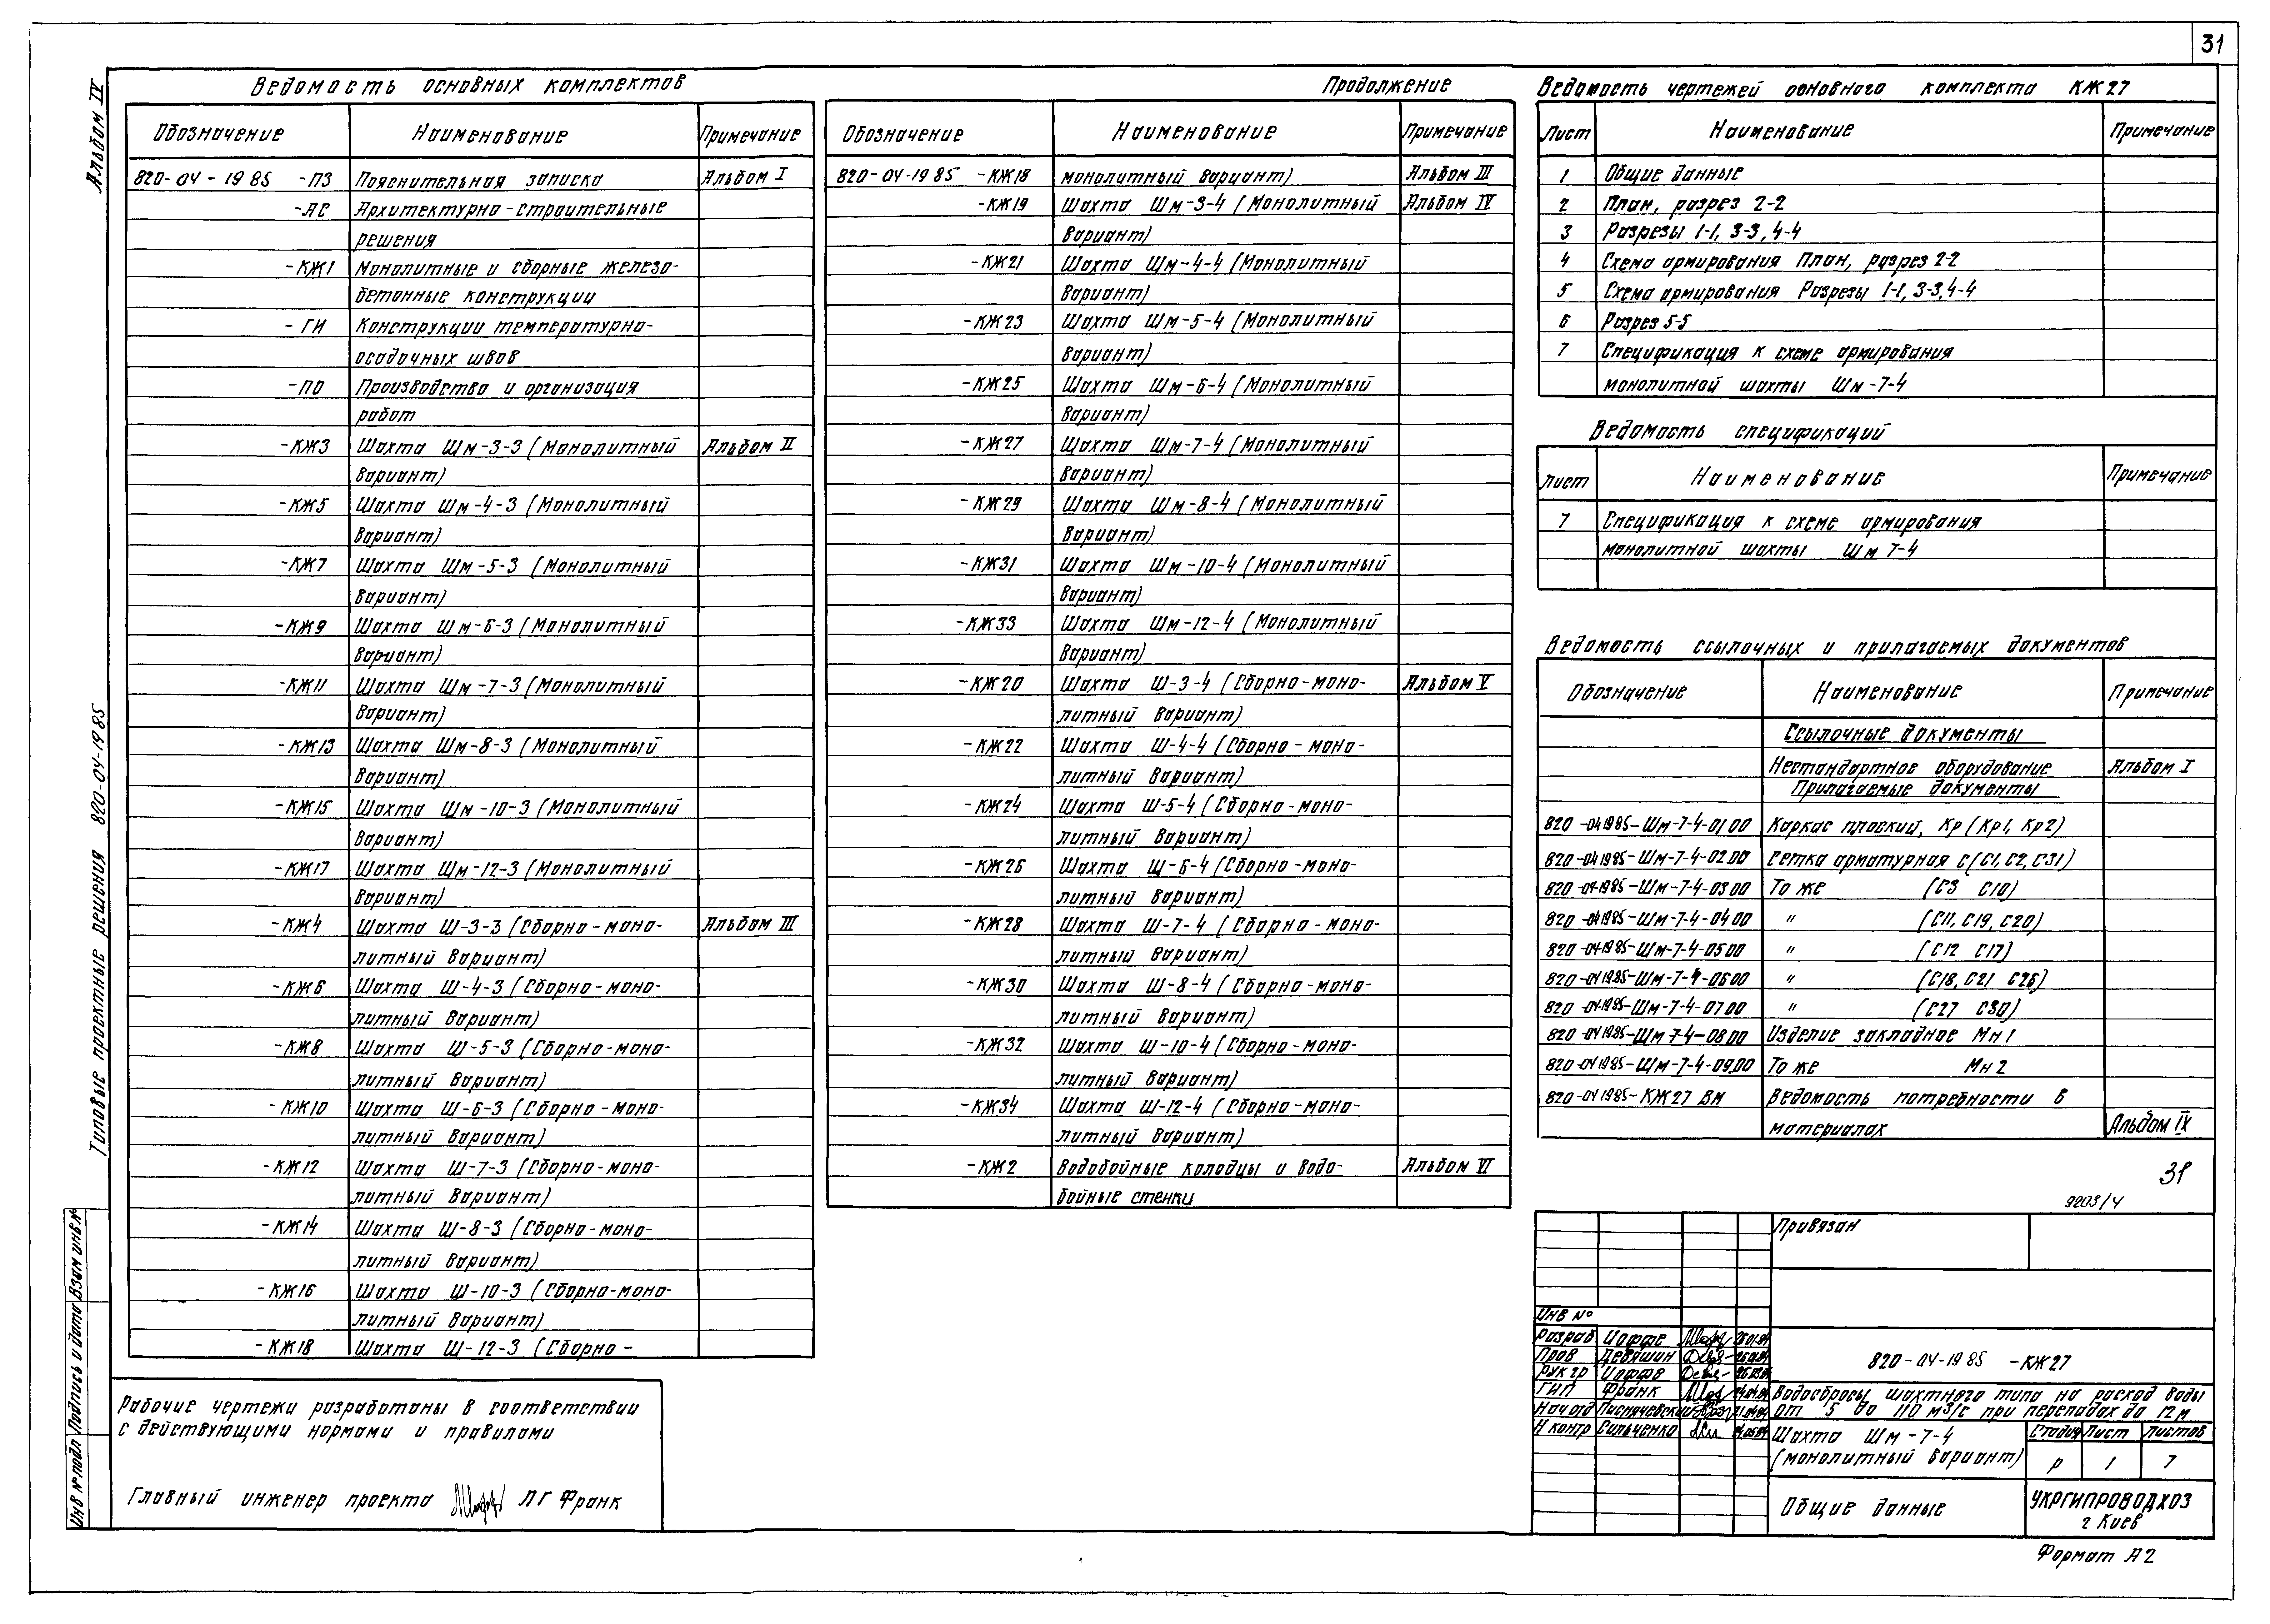 31
Альбом IV
Типовые проектные решения 820-04-19 85
Ведомость основных комплектов
Обозначение Наименование Примечание
820-04-19 85 -ПЗ Пояснительная записка Альбом I
-АС Архитектурно-строительные
решения
-КЖ1 Монолитные и сборные железо-
бетонные конструкции
-ГИ Конструкции температурно-
осадочных швов
-ПО Производство и организация
работ
-КЖ3 Шахта Шм-3-3 (Монолитный Альбом II
вариант)
-КЖ5 Шахта Шм-4-3 (Монолитный
вариант)
-КЖ7 Шахта Шм-5-3 (Монолитный
вариант)
-КЖ9 Шахта Шм-6-3 (Монолитный
вариант)
-КЖ11 Шахта Шм-7-3 (Монолитный
вариант)
-КЖ13 Шахта Шм-8-3 (Монолитный
вариант)
-КЖ15 Шахта Шм-10-3 (Монолитный
вариант)
-КЖ17 Шахта Шм-12-3 (Монолитный
вариант)
-КЖ4 Шахта Ш-3-3 (Сборно-моно- Альбом III
литный вариант)
-КЖ6 Шахта Ш-4-3 (Сборно-моно-
литный вариант)
-КЖ8 Шахта Ш-5-3 (Сборно-моно-
литный вариант)
-КЖ10 Шахта Ш-6-3 (Сборно-моно-
литный вариант)
-КЖ12 Шахта Ш-7-3 (Сборно-моно-
литный вариант)
-КЖ14 Шахта Ш-8-3 (Сборно-моно-
литный вариант)
-КЖ16 Шахта Ш-10-3 (Сборно-моно-
литный вариант)
-КЖ18 Шахта Ш-12-3 (Сборно-
Продолжение
Обозначение Наименование Примечание
820-04-19 85 -КЖ18 монолитный вариант) Альбом III
-КЖ19 Шахта Шм-3-4 (Монолитный Альбом IV
вариант)
-КЖ21 Шахта Шм-4-4 (Монолитный
вариант)
-КЖ23 Шахта Шм-5-4 (Монолитный
вариант)
-КЖ25 Шахта Шм-6-4 (Монолитный
вариант)
-КЖ27 Шахта Шм-7-4 (Монолитный
вариант)
-КЖ29 Шахта Шм-8-4 (Монолитный
вариант)
-КЖ31 Шахта Шм-10-4 (Монолитный
вариант)
-КЖ33 Шахта Шм-12-4 (Монолитный
вариант)
-КЖ20 Шахта Ш-3-4 (Сборно-моно- Альбом V
литный вариант)
-КЖ22 Шахта Ш-4-4 (Сборно-моно-
литный вариант)
-КЖ24 Шахта Ш-5-4 (Сборно-моно-
литный вариант)
-КЖ26 Шахта Ш-6-4 (Сборно-моно-
литный вариант)
-КЖ28 Шахта Ш-7-4 (Сборно-моно-
литный вариант)
-КЖ30 Шахта Ш-8-4 (Сборно-моно-
литный вариант)
-КЖ32 Шахта Ш-10-4 (Сборно-моно-
литный вариант)
-КЖ34 Шахта Ш-12-4 (Сборно-моно-
литный вариант)
-КЖ2 Водобойные колодцы и водо- Альбом VI
бойные стенки
Ведомость чертежей основного комплекта КЖ27
Лист Наименование Примечание
1 Общие данные
2 План, разрез 2-2
3 Разрезы 1-1, 3-3, 4-4
4 Схема армирования План, разрез 2-2
5 Схема армирования Разрезы 1-1, 3-3, 4-4
6 Разрез 5-5
7 Спецификация к схеме армирования
монолитной шахты Шм-7-4
Ведомость спецификаций
Лист Наименование Примечание
7 Спецификация к схеме армирования
монолитной шахты Шм 7-4
Ведомость ссылочных и прилагаемых документов
Обозначение Наименование Примечание
Ссылочные документы
Нестандартное оборудование Альбом I
Прилагаемые документы
820-04 1985-Шм-7-4-01 00 Каркас плоский, Кр (Кр1, Кр2)
820-04 1985-Шм-7-4-02 00 Сетка арматурная С (С1, С2, С31)
820-04 1985-Шм-7-4-03 00 То же (С3 С10)
820-04 1985-Шм-7-4-04 00 " (С11, С19, С20)
820-04 1985-Шм-7-4-05 00 " (С12 С17)
820-04 1985-Шм-7-4-06 00 " (С18, С21 С26)
820-04 1985-Шм-7-4-07 00 " (С27 С30)
820-04 1985-Шм 7-4-08 00 Изделие закладное Мн 1
820-04 1985-Шм-7-4-09 00 То же Мн 2
820-04 1985-КЖ27 ВМ Ведомость потребности в
материалах Альбом IX
31
9203/4
Привязан
Инв №
Разраб Иоффе
Пров Девяшин
Рук гр Иоффе
ГИП Франк
Нач отд
Н контр Сильченко
820-04-19 85 -КЖ27
Водосбросы шахтного типа на расход воды
от 5 до 110 м3/с при перепадах до 12 м
Шахта Шм-7-4
(монолитный вариант)
Стадия Лист Листов
р 1 7
Общие данные
УКРГИПРОВОДХОЗ
г Киев
Формат А2
Рабочие чертежи разработаны в соответствии
с действующими нормами и правилами
Главный инженер проекта Л Г Франк
Инв № подл Подпись и дата Взам инв №